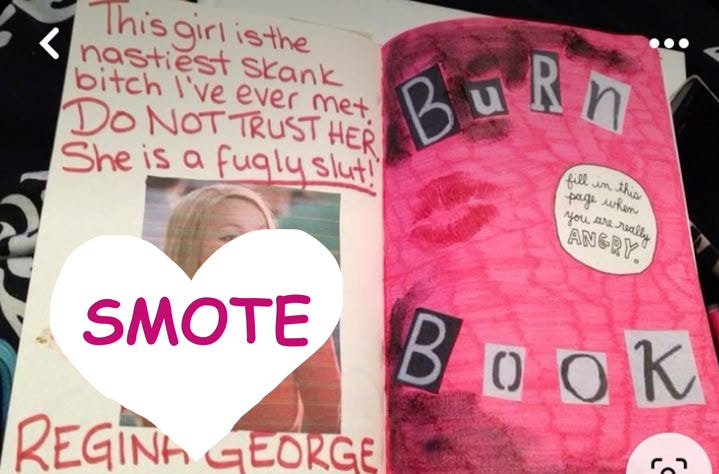 This girl is the
nastiest skank
bitch I've ever met.
DO NOT TRUST HER
She is a fugly slut!
SMOTE
REGINA GEORGE
BuRn
fill in this
page when
you are really
ANGRY.
BooK